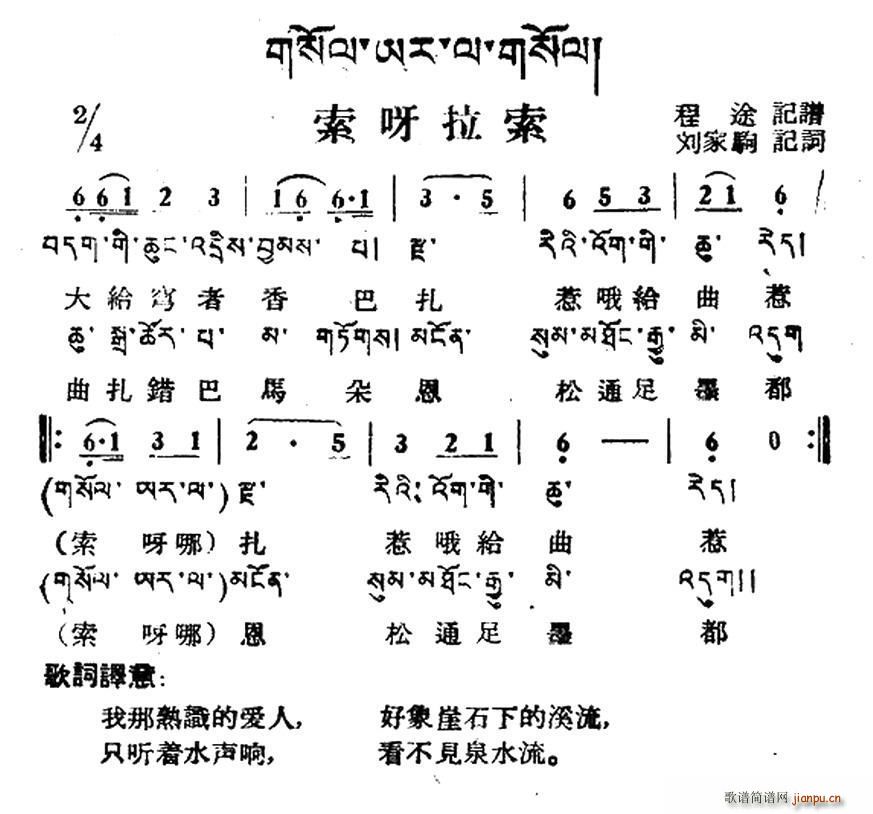 གསོལ་ཨར་ལ་གསོལ།
2/4 索呀拉索 程途 記譜
刘家駒 記詞
6 6 1 2 3 | 1 6 6·1 | 3 · 5 | 6 5 3 | 2 1 6 |
བདག་གི་ཆུང་འདྲིས་བྱམས་ པ། རྫ་ རིའི་འོག་གི་ ཆུ་ རེད།
大給穹者香 巴扎 惹哦給曲惹
ཆུ་ སྒྲ་ཚོར་ པ་ མ་ གཏོགས། མངོན་ སུམ་མ་ཐོང་རྒྱུ་ མི་ འདུག
曲扎錯巴馬 朵恩 松通足墨都
‖: 6·1 3 1 | 2 · 5 | 3 2 1 | 6 — | 6 0 :‖
(གསོལ་ ཨར་ལ་) རྫ་ རིའི་ འོག་གི་ ཆུ་ རེད།
(索 呀哪) 扎 惹哦給 曲 惹
(གསོལ་ ཨར་ལ་) མངོན་ སུམ་མ་ཐོང་རྒྱུ་ མི་ འདུག།།
(索 呀哪) 恩 松通足 墨 都
歌詞譯意:
我那熟識的爱人, 好象崖石下的溪流,
只听着水声响, 看不見泉水流。
歌谱简谱网 jianpu.cn